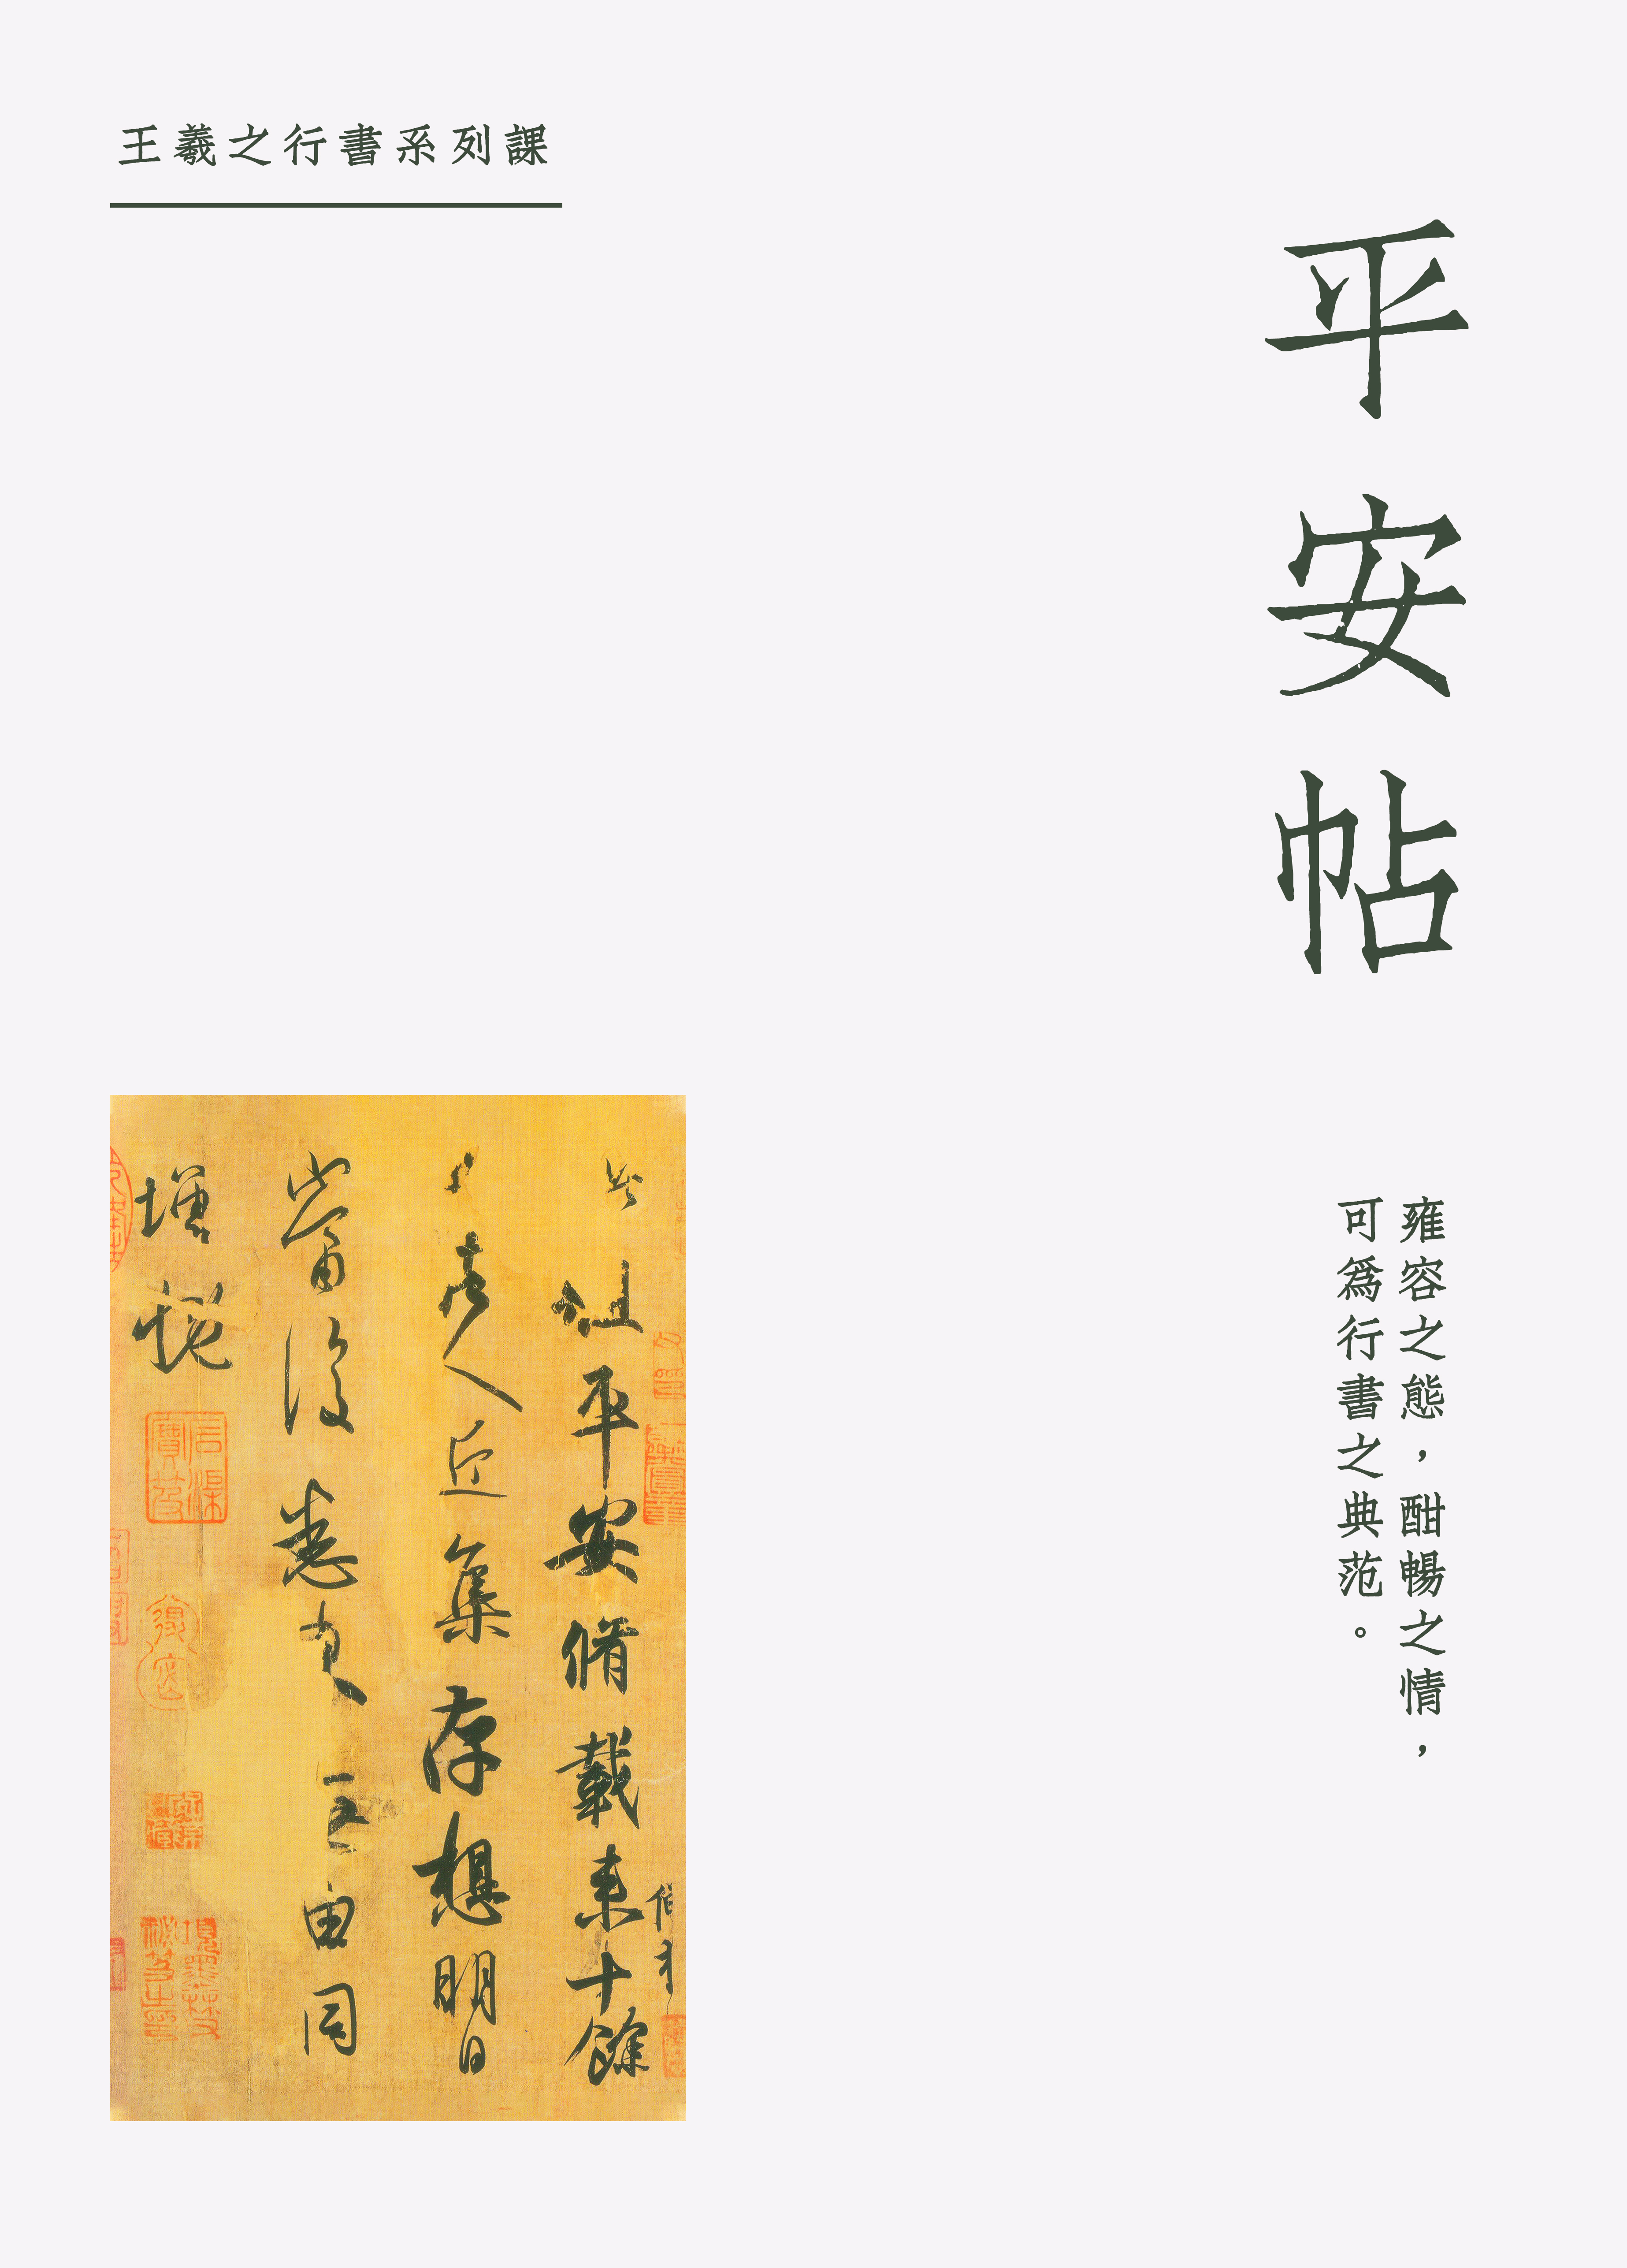 王羲之行書系列課
平安帖
雍容之態，酣暢之情，
可爲行書之典范。
此粗平安脩載来十餘
諸人近集存想明日
當復悉来無由同
增慨